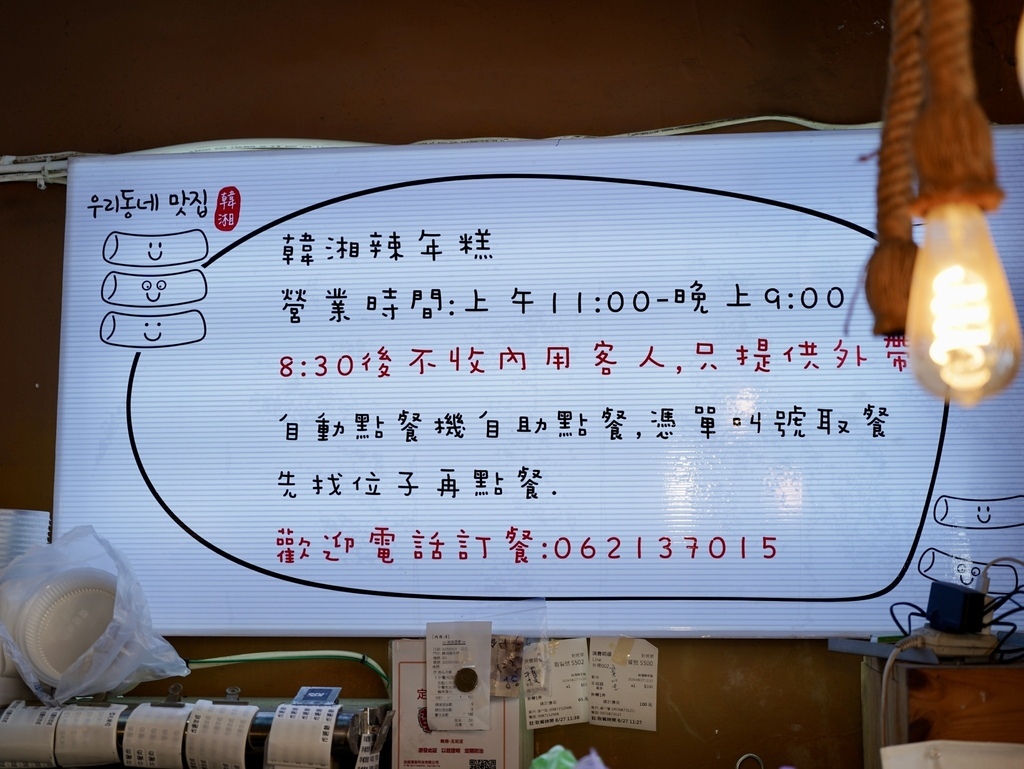 우리동네 맛집
韓湘
韓湘辣年糕
營業時間:上午11:00-晚上9:00
8:30後不收內用客人,只提供外帶
自動點餐機自助點餐,憑單叫號取餐
先找位子再點餐.
歡迎電話訂餐:062137015